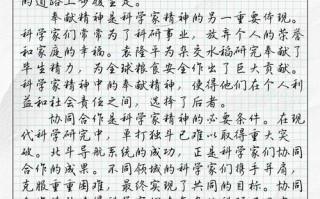 的道路上步履坚定。
奉献精神是科学家精神的另一重要体现。
科学家们常常为了科研事业，放弃个人的荣誉
和家庭的幸福。袁隆平为杂交水稻研究奉献了
毕生精力，为全球粮食安全作出了巨大贡献。
科学家精神中的奉献精神，使得他们在个人利
益和社会责任之间，选择了后者。
协同合作是科学家精神的必要条件。在现
代科学研究中，单打独斗已难以取得重大突
破。北斗导航系统的成功，正是科学家们协同
合作的成果。不同领域的科学家们携手并肩，
克服重重困难，最终实现了共同的目标。协同